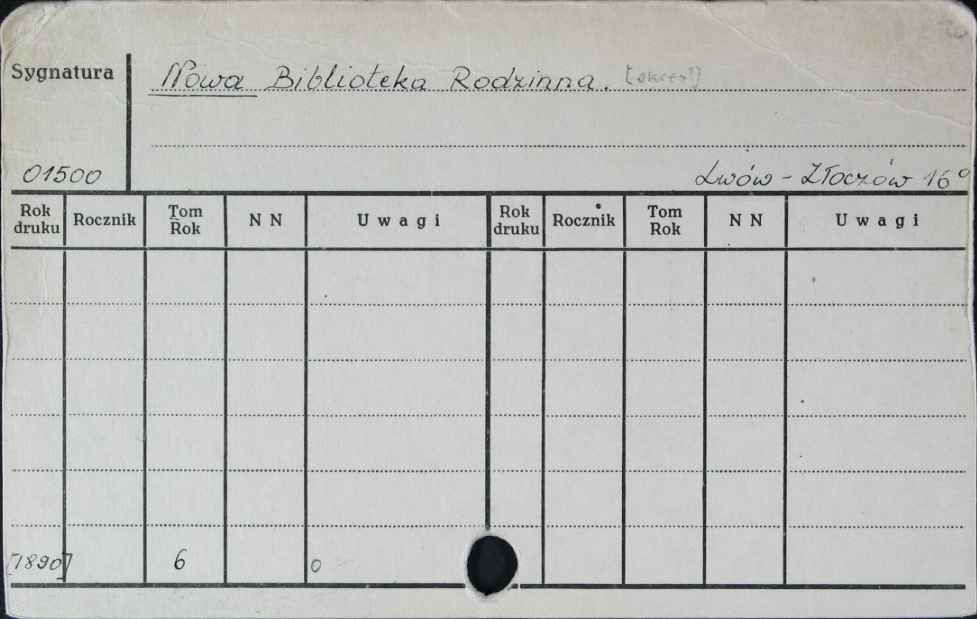 Sygnatura
Nowa Biblioteka Rodzinna.
01500
Lwów - Złoczów 16°
Rok druku Rocznik Tom Rok N N Uwagi Rok druku Rocznik Tom Rok N N Uwagi
[1890] 6 0